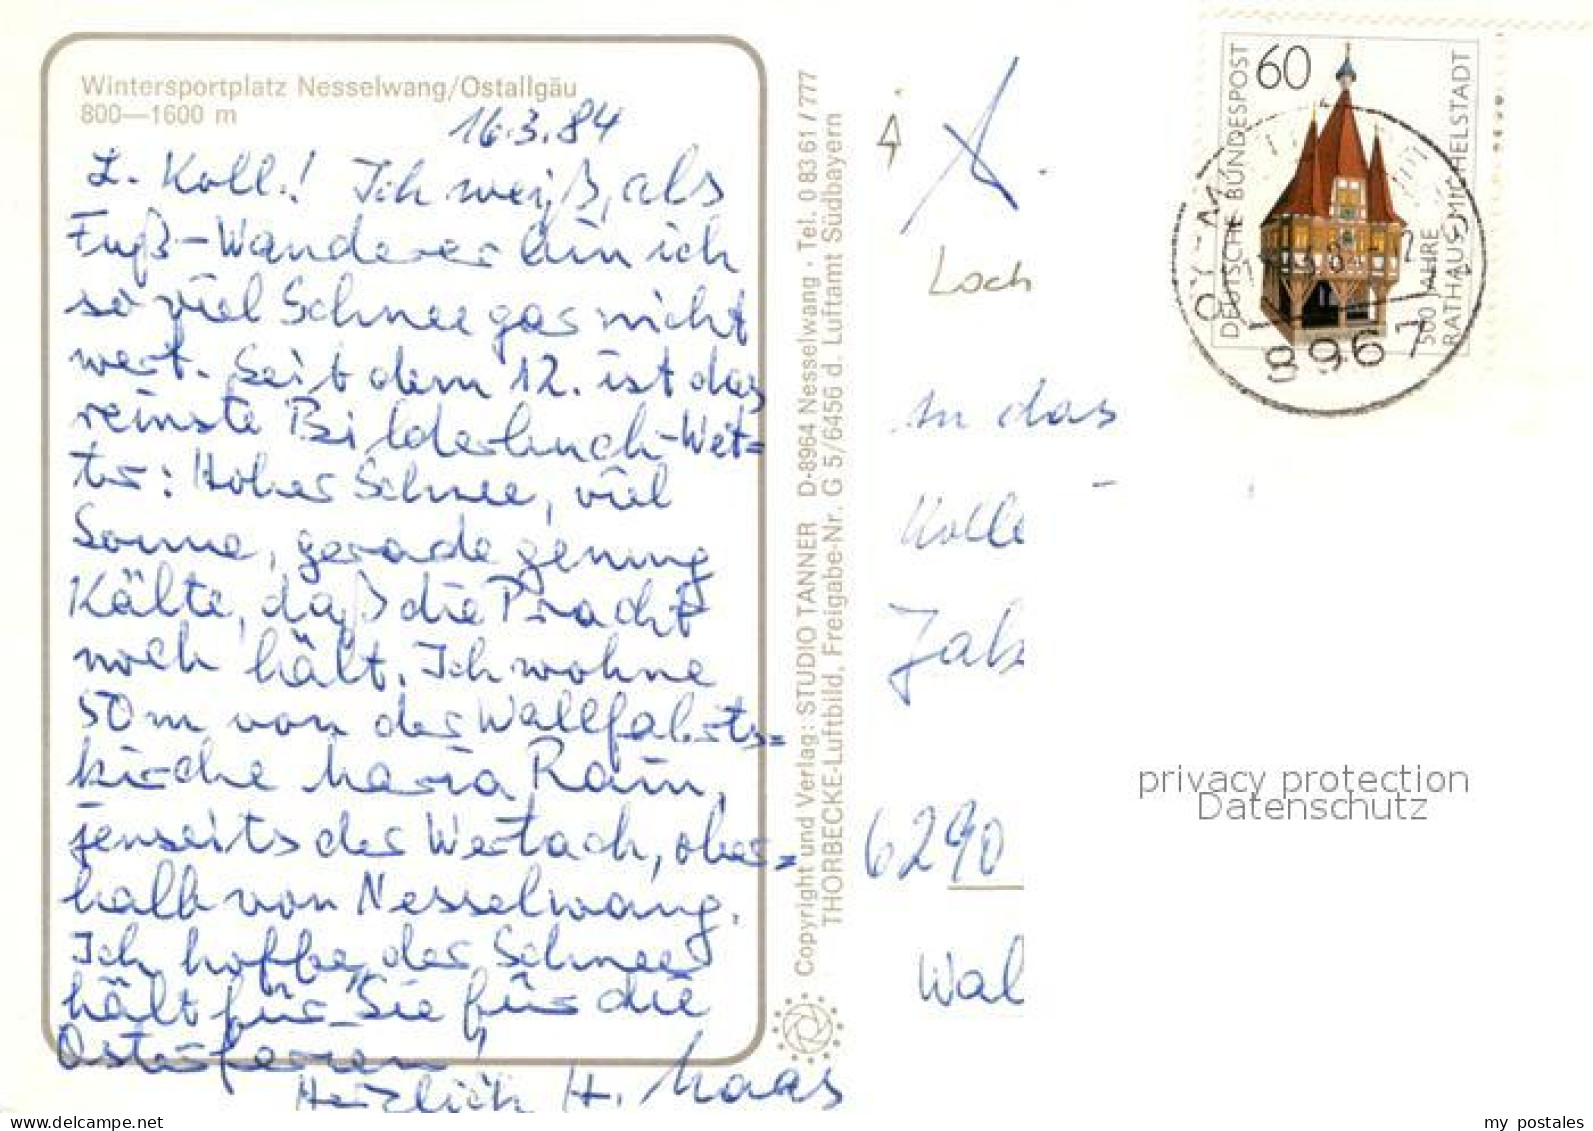 Wintersportplatz Nesselwang/Ostallgäu
800—1600 m
16.3.84
L. Koll.! Ich weiß, als
Fuß-Wanderer bin ich
so viel Schnee gar nicht
wert. Seit dem 12. ist das
reinste Bilderbuch-Wet=
ter: Hoher Schnee, viel
Sonne, gerade genung
Kälte, daß die Pracht
noch hält. Ich wohne
50 m von der Wallfahrts=
kirche Maria Rain,
jenseits der Wertach, ober=
halb von Nesselwang.
Ich hoffe, der Schnee
hält für Sie für die
Osterferien!
Herzlich H. Maas
Copyright und Verlag: STUDIO TANNER D-8964 Nesselwang · Tel. 0 83 61 / 777
THORBECKE-Luftbild, Freigabe-Nr. G 5/6456 d. Luftamt Südbayern
Loch
An das
Kolle
6290
Wal
60
DEUTSCHE BUNDESPOST
500 JAHRE
RATHAUS MICHELSTADT
OY-M
8967
privacy protection
Datenschutz
www.delcampe.net
my_postales